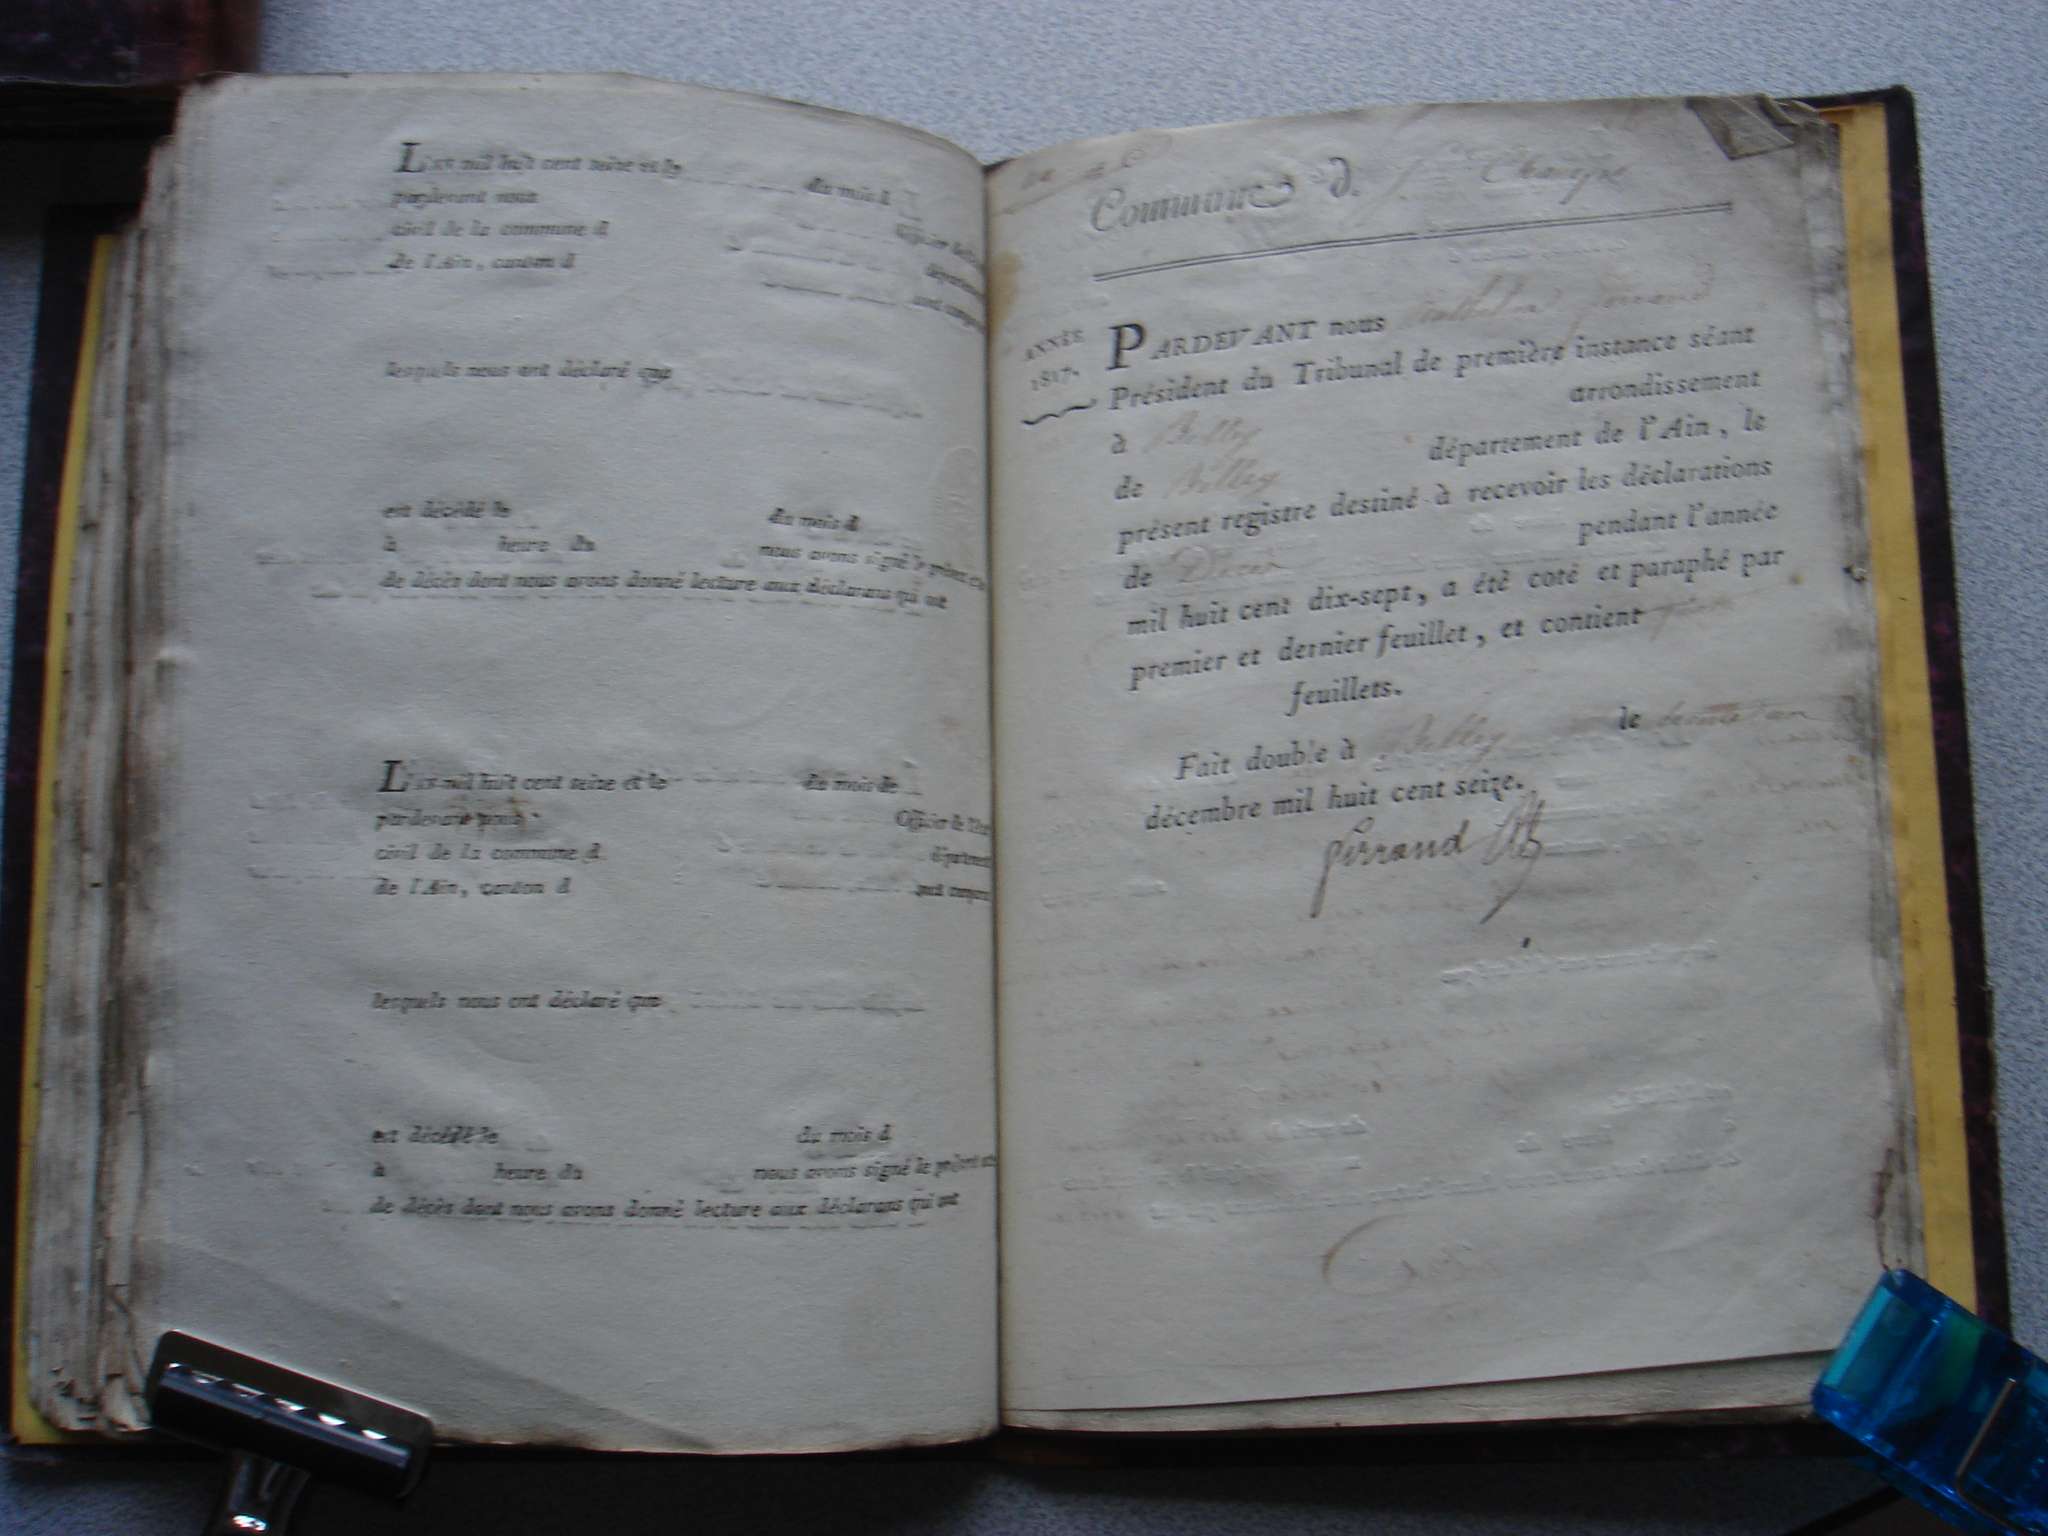 L'an mil huit cent seize et le du mois d
pardevant nous Officier de l'Etat
civil de la commune d département
de l'Ain, canton d sont comparus
lesquels nous ont déclaré que
est décédé le du mois d
à heure du nous avons signé le présent acte
de décès dont nous avons donné lecture aux déclarans qui ont
L'an mil huit cent seize et le du mois de
pardevant nous Officier de l'Etat
civil de la commune d département
de l'Ain, canton d sont comparus
lesquels nous ont déclaré que
est décédé le du mois d
à heure du nous avons signé le présent acte
de décès dont nous avons donné lecture aux déclarans qui ont
Commune d
ANNÉE
1817.
PARDEVANT nous
Président du Tribunal de première instance séant
à Belley arrondissement
de Belley département de l'Ain, le
présent registre destiné à recevoir les déclarations
de Décès pendant l'année
mil huit cent dix-sept, a été coté et paraphé par
premier et dernier feuillet, et contient
feuillets.
Fait double à Belley le
décembre mil huit cent seize.